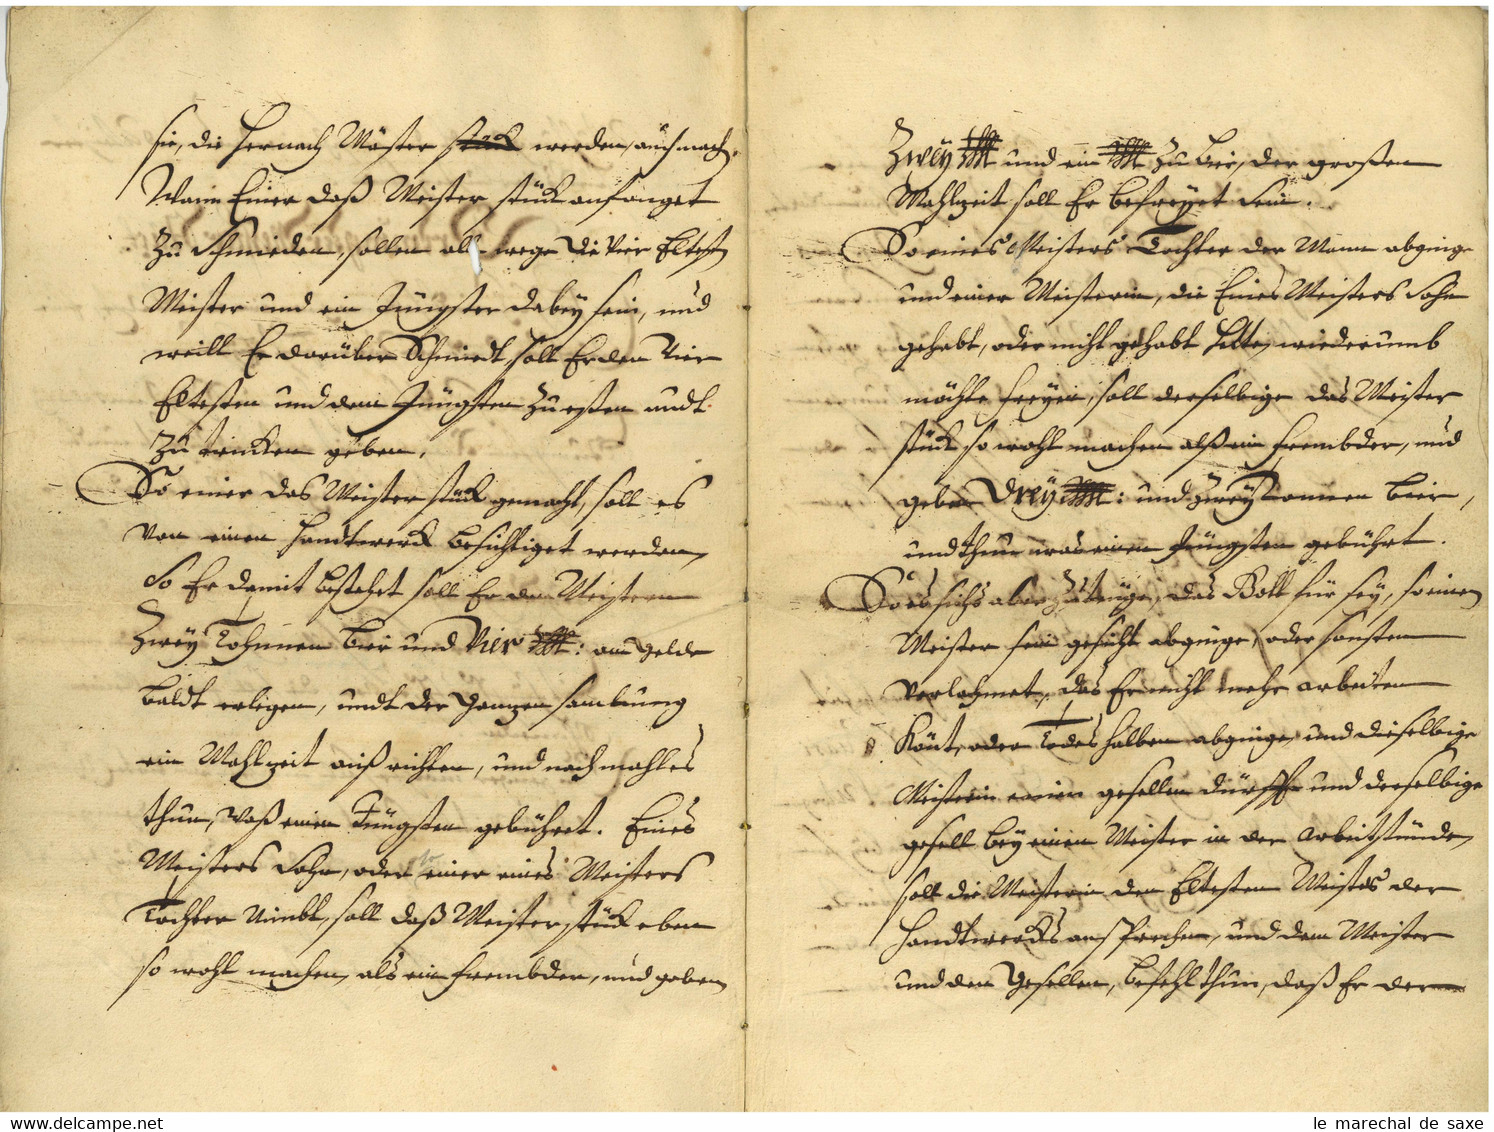 sie, die hernach Mäster werden, auch mach.
Wann Einer daß Meister stück anfanget
Zu Schmieden, sollen all wege die vier Eltesten
Meister und ein Jüngster dabey sein, und
weill Er darüber Schmiedt, soll Er den Vier
Eltesten und dem Jüngsten zu eßen undt
zu trincken geben.
So einer das Meister stück gemacht, soll es
von einen Handtwerck besichtiget werden,
So Er damit bestehet soll Er den Meistern
Zwey Tohnnen bier und vier : an gelde
baldt erlegen, undt der gantzen samblung
ein Mahlzeit auß richten, und nachmahles
thun, waß einen Jüngsten gebühret. Eines
Meisters Sohn, oder einer eines Meisters
Tochter Nimbt, soll daß Meister stück eben
so wohl machen, als ein frembder, und geben
Zwey und ein zu bier, der großen
Mahlzeit soll Er befreyet sein.
So eines Meisters Tochter der Mann abginge
und einer Meisterin, die Eines Meisters Sohn
gehabt, oder nicht gehabt hette, wiederumb
möchte freyen, soll derselbige das Meister
stück so wohl machen alß ein frembder, und
geben Drey : und zwey Tonnen bier,
und thun was einen Jüngsten gebührt.
So es sichs aber zutrüge, das Gott für sey, so einen
Meister sein gesicht abginge, oder sonsten
verlahmet, das Er nicht mehr arbeiten
könt, oder Todes halben abginge, und dieselbige
Meisterin einen gesellen dürffte und derselbige
gesell bey einen Meister in der arbeit stünde,
soll die Meisterin den Eltesten Meister des
Handtwercks ansprechen, und dem Meister
und den Gesellen, befehl thun, daß Er der
delcampe.net
le marechal de saxe